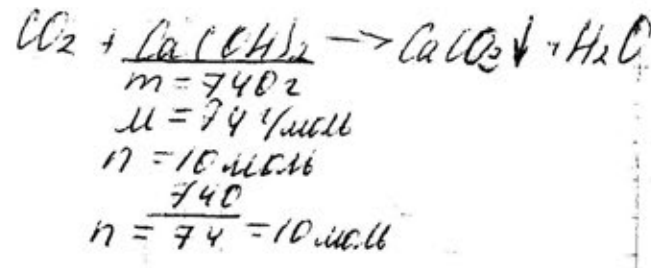 CO₂ + Ca(OH)₂ → CaCO₃↓ + H₂O
m = 740г
M = 74 г/моль
n = 10 моль
740
n = 74 = 10 моль